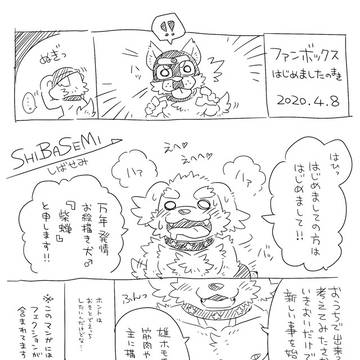 ファンボックス
はじめましたのまき
2020.4.8
!!
ぬぎっ
SHiBASEMi
しばせみ
えへ♡
えへ♡
はひっ
はじめましての方は
はじめまして!!
万年発情
お絵描き犬の
『柴蝉』
と申します!!
おうちで出来
考えてみたえ
いきおいだけ
新しい事を始
ふんっ
雄ホモ
筋肉や
主に描
ホントは
※このマンガには
フェクションが
含まれてます